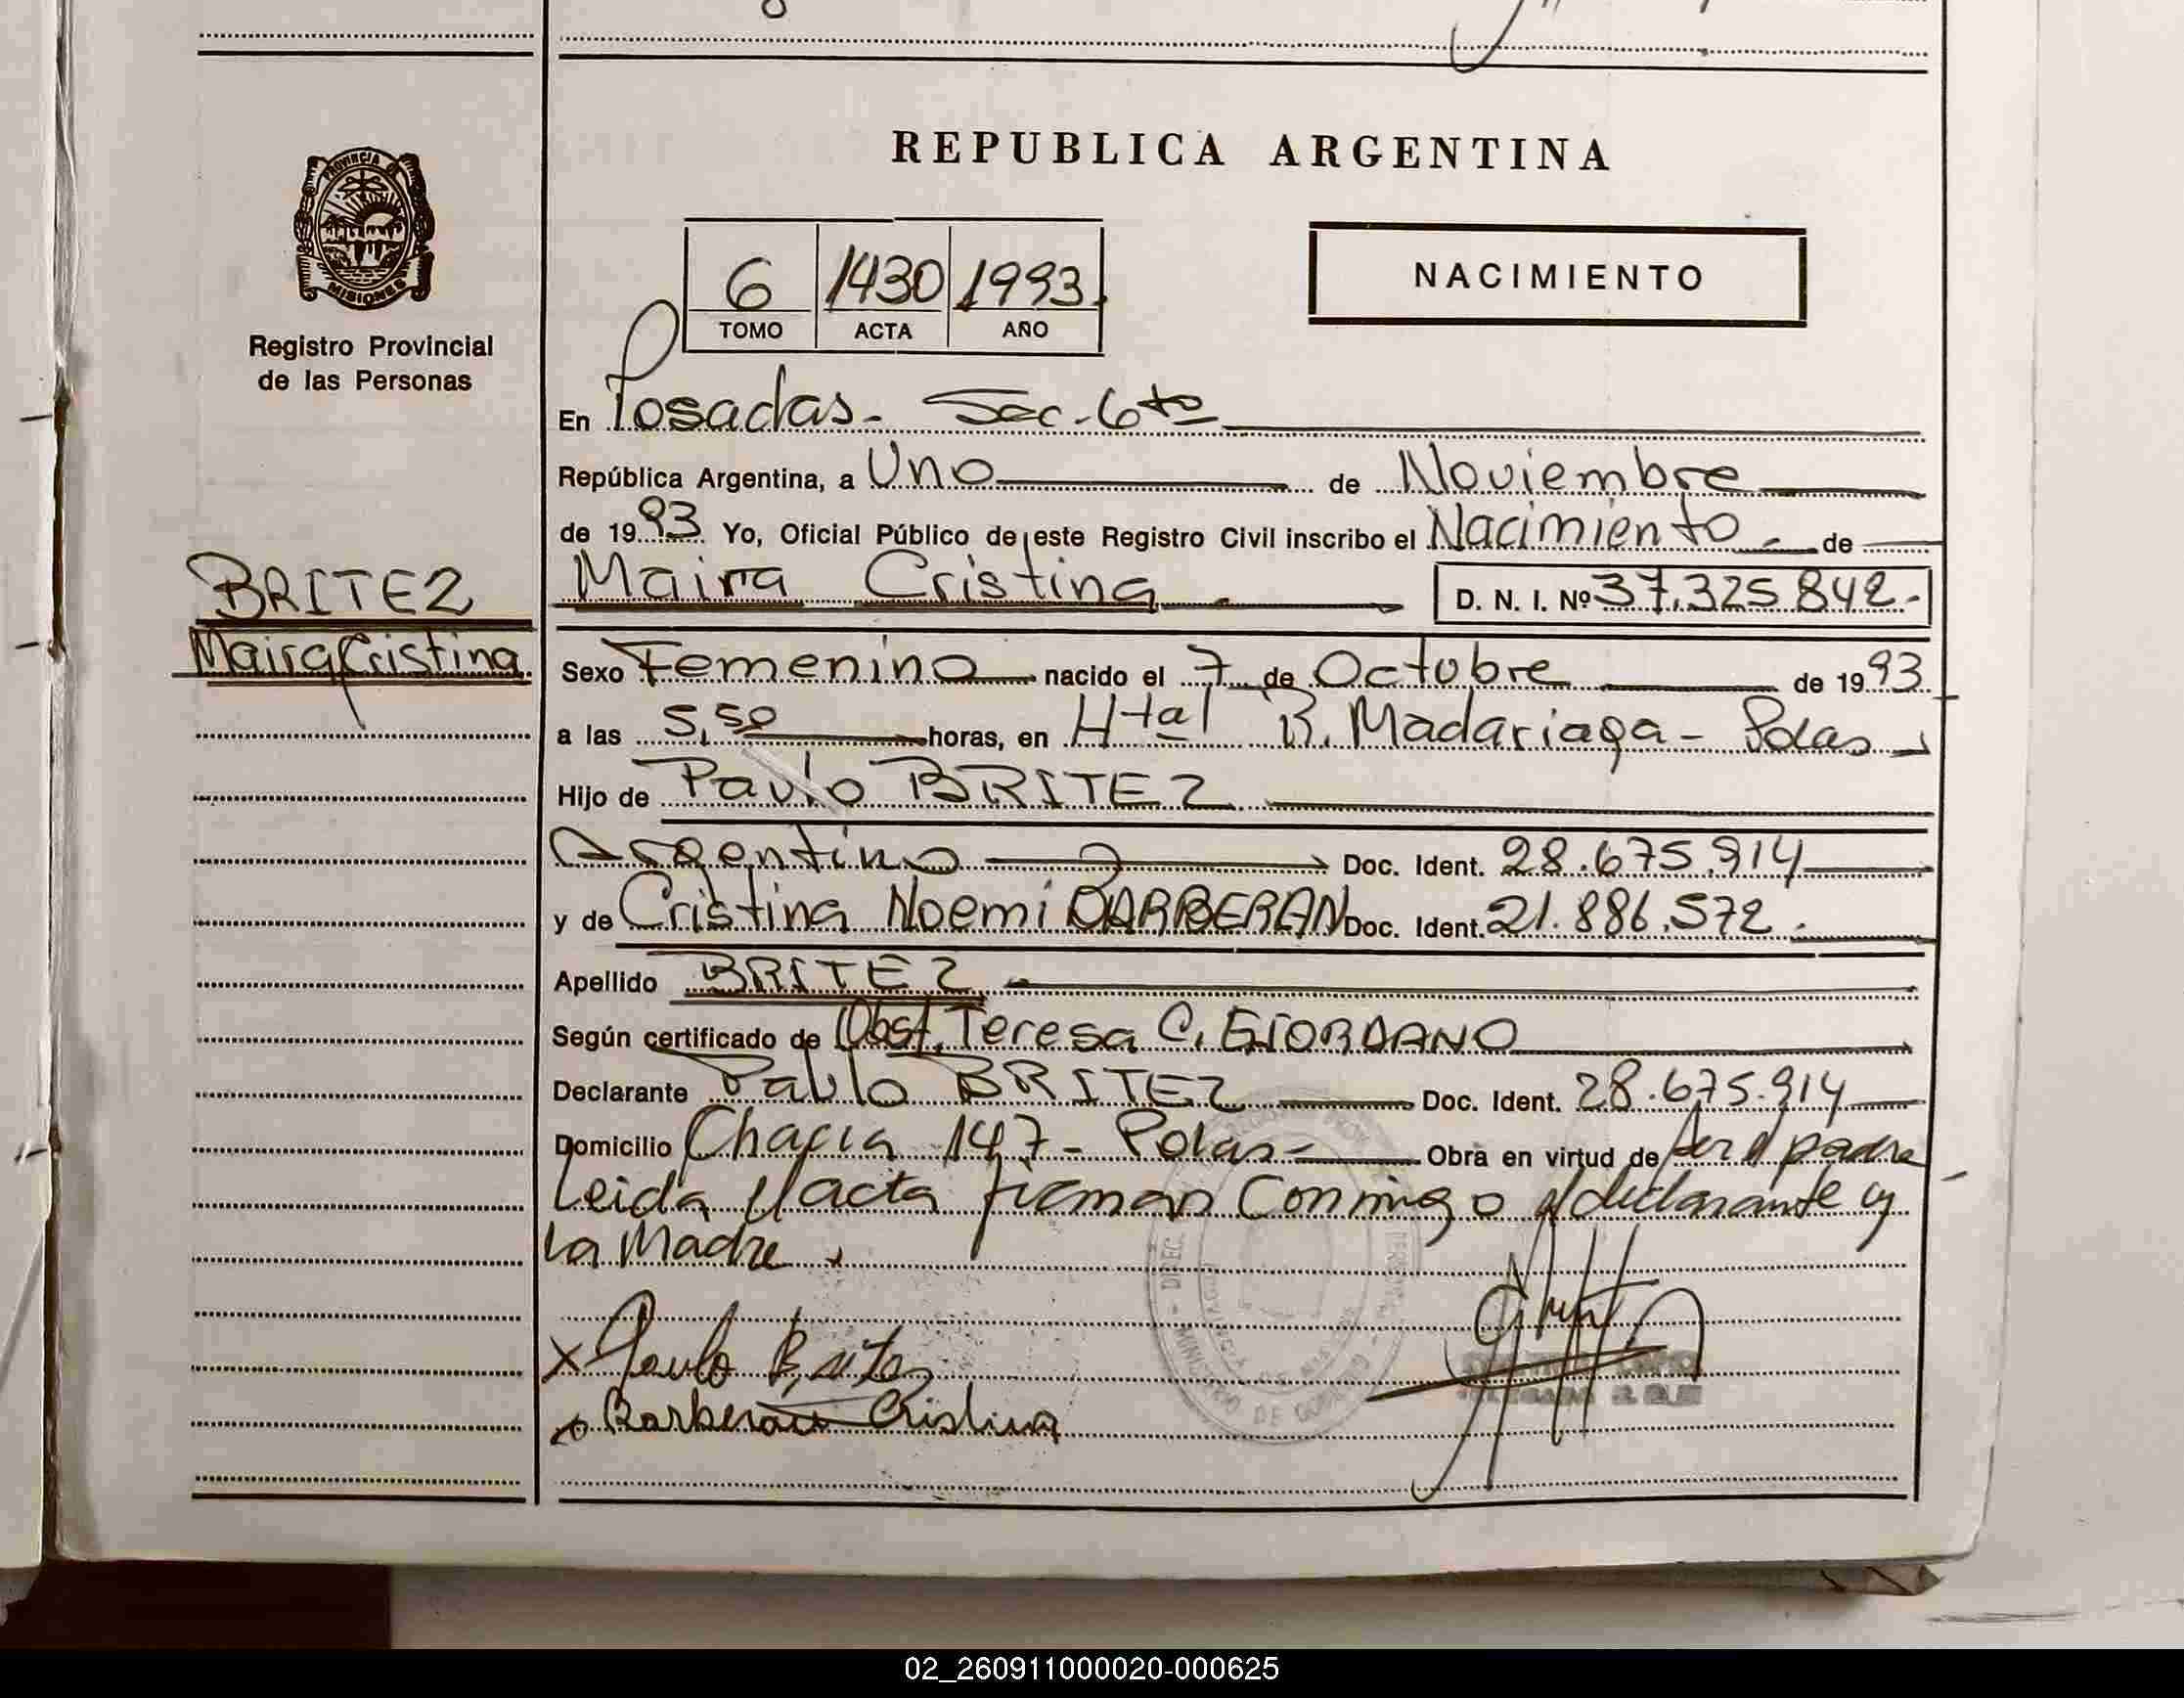 REPUBLICA ARGENTINA
PROVINCIA DE
MISIONES
Registro Provincial
de las Personas
6 1430 1993
TOMO ACTA AÑO
NACIMIENTO
En Posadas - Sec. 6to
República Argentina, a Uno de Noviembre
de 1993 Yo, Oficial Público de este Registro Civil inscribo el Nacimiento de
BRITEZ
Maira Cristina
Maira Cristina D. N. I. Nº 37.325.842.-
Sexo Femenino nacido el 7 de Octubre de 1993
a las 5,50 horas, en Htal R. Madariaga - Pdas
Hijo de Paulo BRITEZ
Argentino Doc. Ident. 28.675.914
y de Cristina Noemi BARBERAN Doc. Ident. 21.886.572.
Apellido BRITEZ
Según certificado de Obst. Teresa C. GIORDANO
Declarante Paulo BRITEZ Doc. Ident. 28.675.914
Domicilio Chacra 147 - Pdas - Obra en virtud de ser el padre
Leida el acta firman Conmigo el declarante y
La Madre
x Paulo Britez
x Barberan Cristina
MINISTERIO DE GOBIERNO
02_260911000020-000625